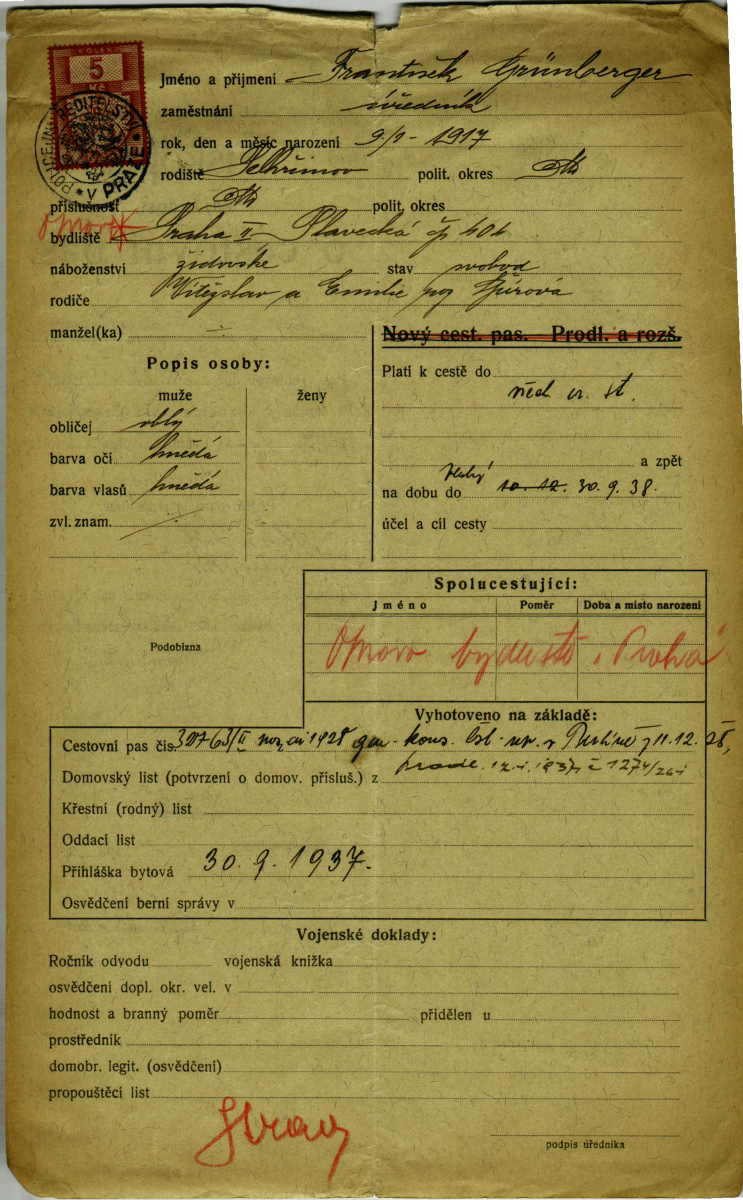 KOLEK
5
POLICEJNÍ ŘEDITELSTVÍ V PRAZE
Jméno a přijmení František Grünberger
zaměstnání úředník
rok, den a měsíc narození 9/ 1917
rodiště polit. okres dtto
příslušnost dtto polit. okres
oprava
bydliště Praha II Plavecká čp 404
náboženství židovské stav svobod
rodiče Vítězslav a Emilie
manžel(ka) ÷
Nový cest. pas. Prodl. a rozš.
Popis osoby:
muže ženy
obličej oblý
barva očí hnědá
barva vlasů hnědá
zvl. znam. ÷
Platí k cestě do
všech ev. st.
a zpět
na dobu do 10. 12. 30. 9. 38.
účel a cíl cesty
Podobizna
Spolucestující:
Jméno Poměr Doba a místo narození
Oprava bydliště Praha
Vyhotoveno na základě:
Cestovní pas čís. 1928 gen. kons. čsl. 11. 12. 28,
Domovský list (potvrzení o domov. přísluš.) z
prodl. 1937 č
Křestní (rodný) list
Oddací list
Přihláška bytová 30. 9. 1937.
Osvědčení berní správy v
Vojenské doklady:
Ročník odvodu vojenská knížka
osvědčení dopl. okr. vel. v
hodnost a branný poměr přidělen u
prostředník
domobr. legit. (osvědčení)
propouštěcí list
podpis úředníka